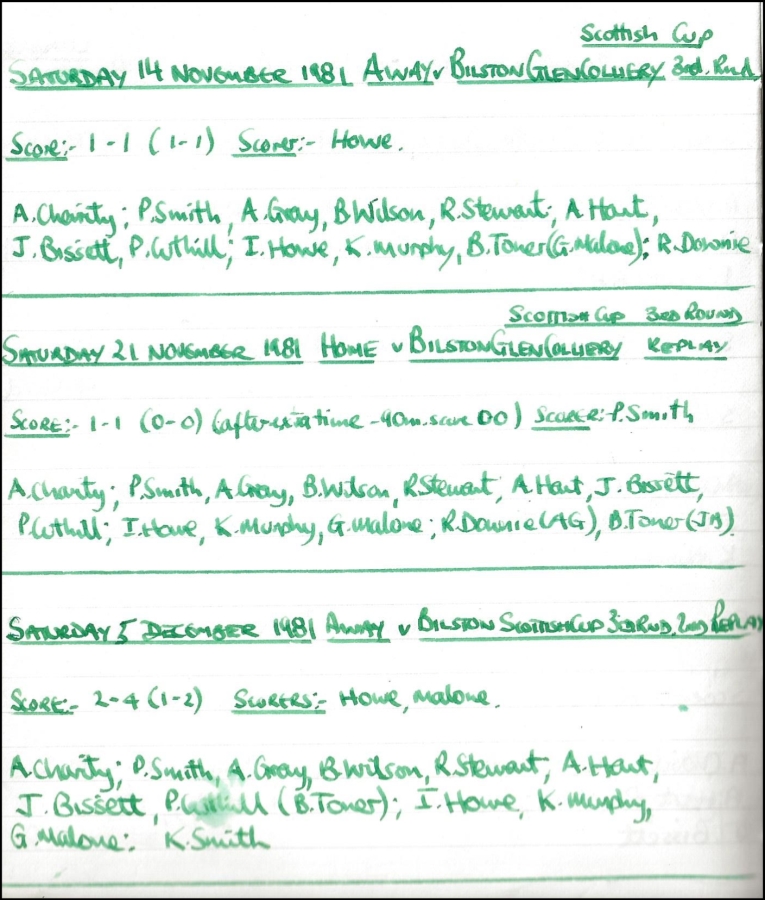 Scottish Cup
SATURDAY 14 NOVEMBER 1981 AWAY v BILSTON GLEN COLLIERY 3rd. Rnd.
Score:- 1-1 (1-1) Scorer:- Howe.
A. Charity; P. Smith, A. Gray, B. Wilson, R. Stewart; A. Hart,
J. Bissett, P. Cuthill; I. Howe, K. Murphy, B. Toner (G. Malone); R. Downie
SCOTTISH CUP 3RD ROUND
SATURDAY 21 NOVEMBER 1981 HOME v BILSTON GLEN COLLIERY REPLAY
SCORE:- 1-1 (0-0) (after extra time - 90m. score 00) SCORER:- P. Smith
A. Charity; P. Smith, A. Gray, B. Wilson, R. Stewart; A. Hart, J. Bissett,
P. Cuthill; I. Howe, K. Murphy, G. Malone; R. Downie (AG), B. Toner (JB)
SATURDAY 5 DECEMBER 1981 AWAY v BILSTON SCOTTISH CUP 3rd RND. 2nd REPLAY
SCORE:- 2-4 (1-2) SCORERS:- Howe, Malone.
A. Charity; P. Smith, A. Gray, B. Wilson, R. Stewart; A. Hart,
J. Bissett, P. Cuthill (B. Toner); I. Howe, K. Murphy,
G. Malone; K. Smith